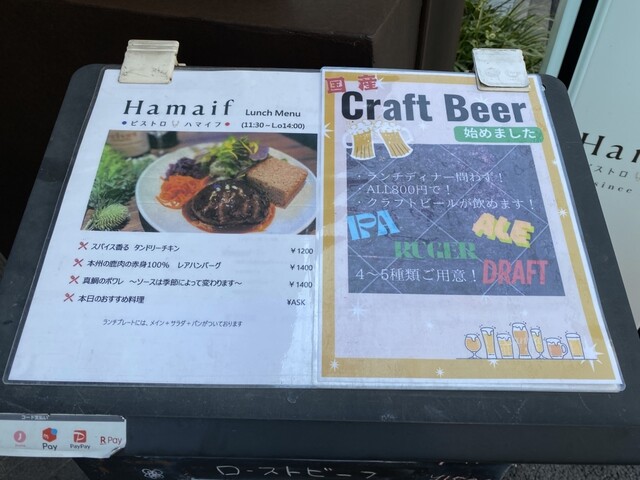 Hamaif Lunch Menu
ビストロ ハマイフ (11:30－L.o14:00)
スパイス香る タンドリーチキン ￥1200
本州の鹿肉の赤身100％ レアハンバーグ ￥1400
真鯛のポワレ ～ソースは季節によって変わります～ ￥1400
本日のおすすめ料理 ¥ASK
ランチプレートには、メイン＋サラダ＋パンがついております
国産
Craft Beer
始めました
・ランチディナー問わず！
・ALL800円で！
・クラフトビールが飲めます！
IPA
ALE
RUGER
DRAFT
4～5種類ご用意！
Ham
ビストロ
since
Pay
PayPay
R Pay
ローストビーフ